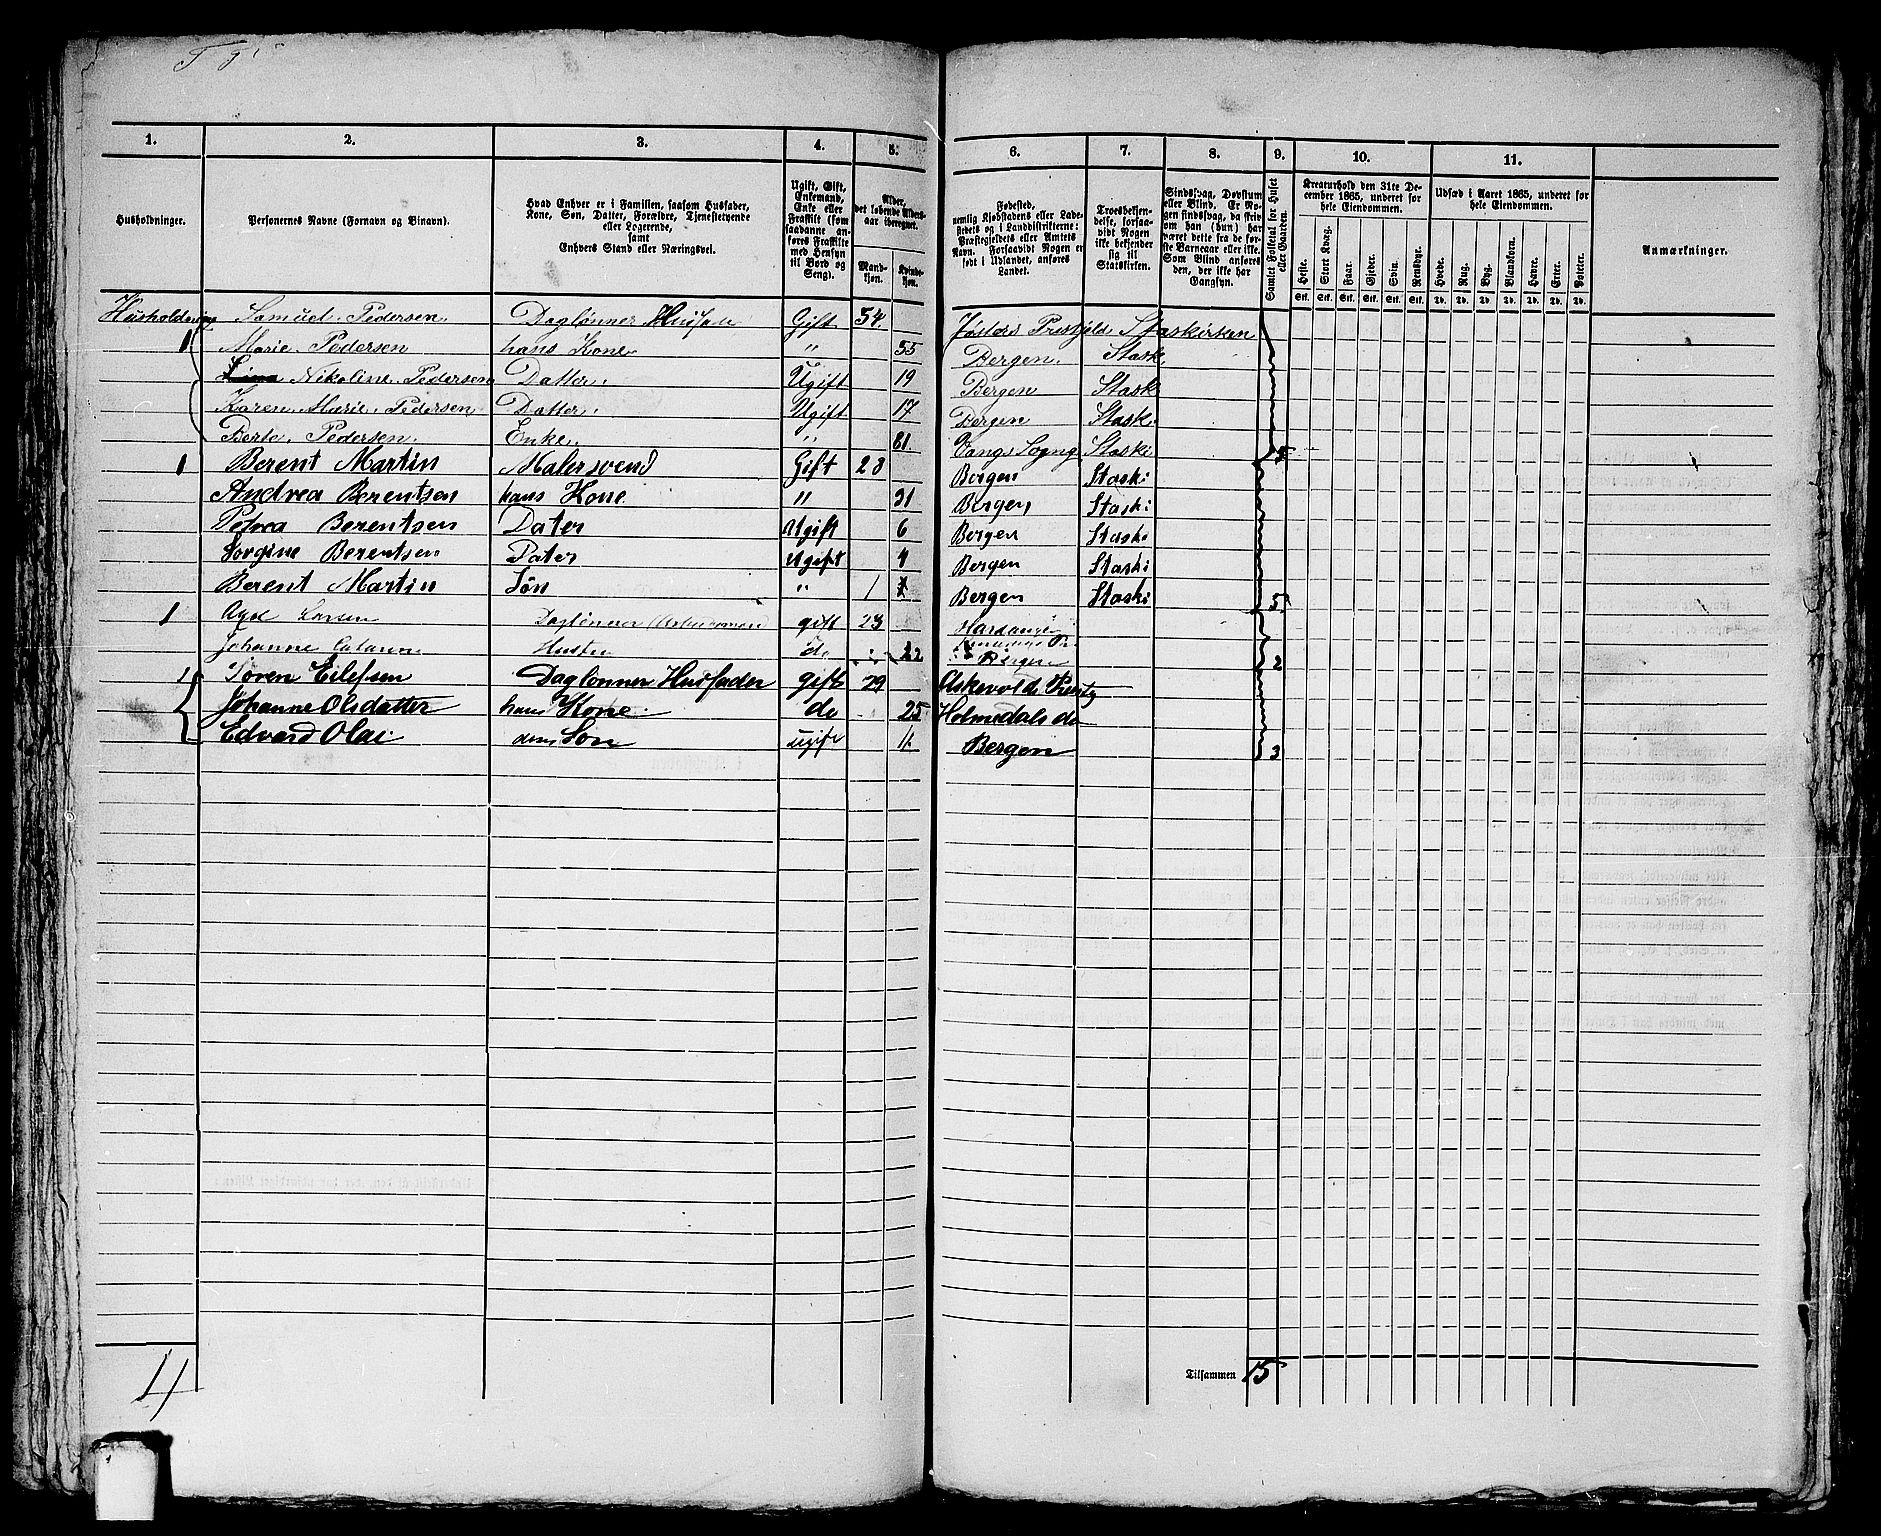 1. 2. 3. 4. 5. 6. 7. 8. 9. 10. 11.
Husholdninger.
Personernes Navne (Fornavn og Binavn).
Hvad Enhver er i Familien, saasom Husfader,
Kone, Søn, Datter, Forældre, Tjenestetyende
eller Logerende,
samt
Enhvers Stand eller Næringsvei.
Ugift, Gift,
Enkemand,
Enke eller
Fraskilt (som
saadanne an-
føres Fraskilte
med Hensyn
til Bord og
Seng).
Alder,
det løbende Alders-
aar iberegnet.
Mand-
kjøn.
Kvinde-
kjøn.
Fødested,
nemlig Kjøbstadens eller Lade-
stedets og i Landdistrikterne:
Præstegjeldets eller Amtets
Navn. Forsaavidt Nogen er
født i Udlandet, anføres
Landet.
Troesbekjen-
delse, forsaa-
vidt Nogen
ikke bekjender
sig til
Statskirken.
Sindssvag, Døvstum
eller Blind. Er No-
gen sindssvag, da skrives
om han (hun) har
været dette fra de før-
ste Barneaar eller ikke.
Som Blind anføres
den, der ikke har
Gangsyn.
Samlet Folketal for Huset
eller Gaarden.
Kreaturhold den 31te De-
cember 1865, underet for
hele Eiendommen.
Heste. Stort Kvæg. Faar. Gjeder. Svin. Rensdyr.
Stk. Stk. Stk. Stk. Stk. Stk.
Udsæd i Aaret 1865, underet for
hele Eiendommen.
Hvede. Rug. Byg. Blandkorn. Havre. Erter. Poteter.
Td. Td. Td. Td. Td. Td. Td.
Anmærkninger.
Husholdning Samuel Pedersen Daglønner Husfade Gift 54 Statskirsen
1 Marie Pedersen hans Kone " 55 Bergen Statsk
Nikoline Pedersen Datter Ugift 19 Bergen Statsk
Karen Marie Pedersen Datter Ugift 17 Bergen Statsk
Berte Pedersen Enke " 81 Vangs Sogn Statski 5
1 Berent Martin Malersvend Gift 28 Bergen Staski
Andrea Berentsen hans Kone " 31 Bergen Staski
Pedrea Berentsen Dater Ugift 6 Bergen Staski
Sorgine Berentsen Dater Ugift 4 Bergen Staski
Berent Martin Søn " 1 Bergen Staski 5
1 Larsen Daglönner gift 23 Hardanger
Johanne Catarina Hustru do 22 Bergen 2
1 Søren Eilefsen Daglønner Husfader gift 29 Askevold Prestg
Johanne Olsdatter hans Kone do 25 Holmedals do
Edvard Olai Søn ugift Bergen 3
4 Tilsammen 15